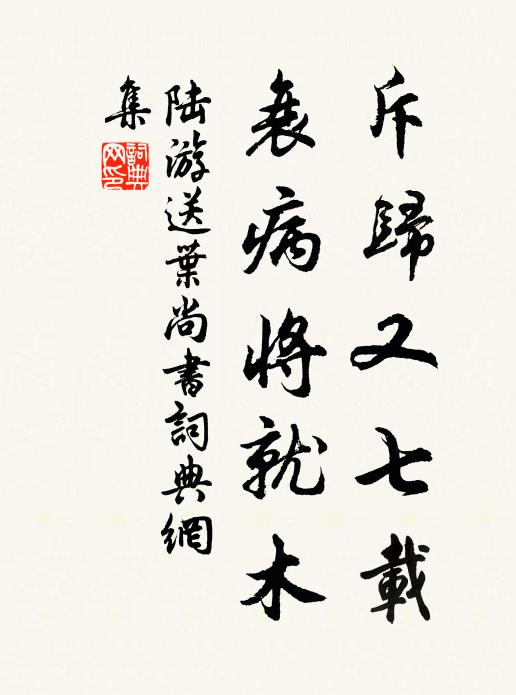 斥歸又七載
衰病將就木
陸游送葉尚書詞典網
集
詞典
网印